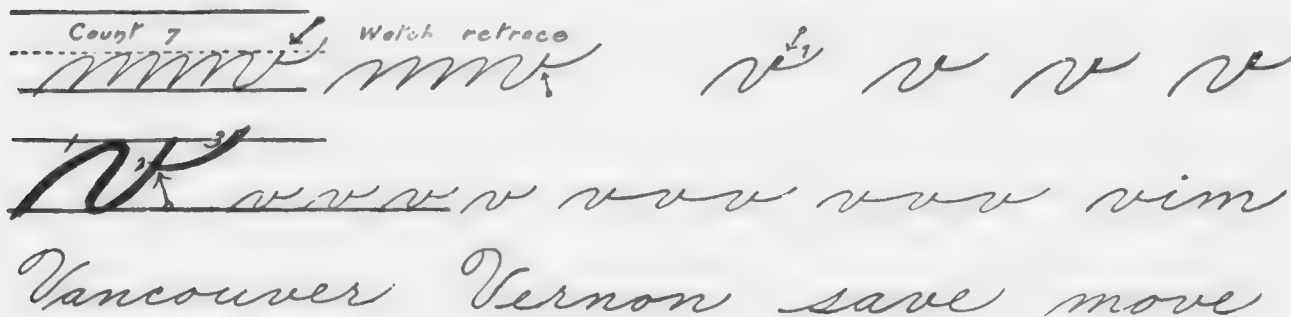 Count 7 Watch retrace
mmv mmv v 1 v v v
1 2 3 v v v v vvv vvv vim
Vancouver Vernon save move